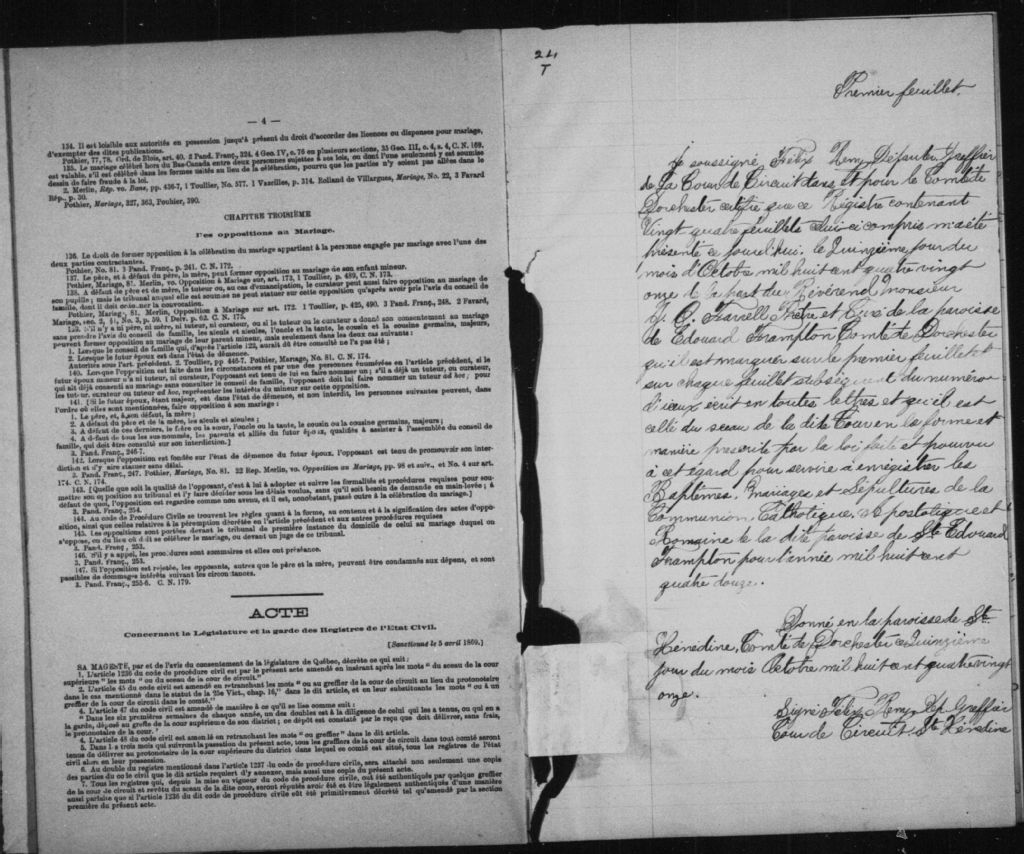 — 4 —
134. Il est loisible aux autorités en possession jusqu'à présent du droit d'accorder des licences ou dispenses pour mariage,
d'exempter des dites publications.
Pothier, 77, 78. Ord. de Blois, art. 40. 2 Pand. Franç., 324. 4 Geo. IV, c. 76 en plusieurs sections, 35 Geo. III, c. 4, s. 4, C. N. 169.
135. Le mariage célébré hors du Bas-Canada entre deux personnes sujettes à ses lois, ou dont l'une seulement y est soumise
est valable, s'il est célébré dans les formes usitées au lieu de la célébration, pourvu que les parties n'y soient pas allées dans le
dessin de faire fraude à la loi.
2. Merlin, Rép. vo. Bans, pp. 436-7, 1 Toullier, No. 577. 1 Vazeilles, p. 314. Rolland de Villargues, Mariage, No. 22, 3 Favard
Rép., p. 30.
Pothier, Mariage, 327, 363, Pouhier, 390.
CHAPITRE TROISIÈME
Des oppositions au Mariage.
136. Le droit de former opposition à la célébration du mariage appartient à la personne engagée par mariage avec l'une des
deux parties contractantes.
Pothier, No. 81. 3 Pand. Franç., p. 241. C. N. 172.
137. Le père, et à défaut du père, la mère, peut former opposition au mariage de son enfant mineur.
Pothier, Mariage, 81. Merlin, vo. Opposition à Mariage sur, art. 173, 1 Toullier, p. 489, C. N. 173.
138. A défaut de père et de mère, le tuteur ou, au cas d'émancipation, le curateur peut aussi faire opposition au mariage de
son pupille; mais le tribunal auquel elle est soumise ne peut statuer sur cette opposition qu'après avoir pris l'avis du conseil de
famille, dont il doit ordonner la convocation.
Pothier, Mariage, 81. Merlin, Opposition à Mariage sur art. 172. 1 Toullier, p. 425, 490. 3 Pand. Franç., 248. 2 Favard,
Mariage, sec. 2, § 1, No. 3, p. 59. 1 Delv. p. 62. C. N. 175.
139. S'il n'y a ni père, ni mère, ni tuteur, ni curateur, ou si le tuteur ou le curateur a donné son consentement au mariage
sans prendre l'avis du conseil de famille, les aïeuls et aïeules, l'oncle et la tante, le cousin et la cousine germains, majeurs,
peuvent former opposition au mariage de leur parent mineur, mais seulement dans les deux cas suivants:
1. Lorsque le conseil de famille qui, d'après l'article 122, aurait dû être consulté ne l'a pas été;
2. Lorsque le futur époux est dans l'état de démence.
Autorités sous l'art. précédent. 2. Toullier, pp 446-7. Pothier, Mariage, No. 81. C. N. 174.
140. Lorsque l'opposition est faite dans les circonstances et par une des personnes énumérées en l'article précédent, si le
futur époux mineur n'a ni tuteur, ni curateur, l'opposant est tenu de lui en faire nommer un; s'il a déjà un tuteur, ou curateur,
qui ait déjà consenti au mariage sans consulter le conseil de famille, l'opposant doit lui faire nommer un tuteur ad hoc, pour
les tuteur, curateur ou tuteur ad hoc, représenter les intérêts du mineur sur cette opposition.
141. [Si le futur époux, étant majeur, est dans l'état de démence, et non interdit, les personnes suivantes peuvent, dans
l'ordre où elles sont mentionnées, faire opposition à son mariage:
1. Le père, et, à son défaut, la mère;
2. A défaut du père et de la mère, les aïeuls et aïeules;
3. A défaut de ces derniers, le frère ou la sœur, l'oncle ou la tante, le cousin ou la cousine germains, majeurs;
4. A défaut de tous les sus-nommés, les parents et alliés du futur époux, qualifiés à assister à l'assemblée du conseil de
famille, qui doit être consulté sur son interdiction.]
3. Pand. Franç., 246-7.
142. Lorsque l'opposition est fondée sur l'état de démence du futur époux, l'opposant est tenu de promouvoir son inter-
diction et d'y faire statuer sans délai.
3. Pand. Franç., 247. Pothier, Mariage, No. 81. 22 Rep. Merlin, vo. Opposition au Mariage, pp. 98 et suiv., et No. 4 sur art.
174. C. N. 174.
143. [Quelque que soit la qualité de l'opposant, c'est à lui à adopter et suivre les formalités et procédures requises pour sou-
mettre son opposition au tribunal et l'y faire décider sous les délais voulus, sans qu'il soit besoin de demande en main-levée; à
défaut de quoi, l'opposition est regardée comme non avenu, et il est, nonobstant, passé outre à la célébration du mariage.]
3. Pand. Franç., 254.
144. Au code de Procédure Civile se trouvent les règles quant à la forme, au contenu et à la signification des actes d'oppo-
sition, ainsi que celles relatives à la péremption décrétée en l'article précédent et aux autres procédures requises
145. Les oppositions sont portées devant le tribunal de première instance du domicile de celui au mariage duquel on
s'oppose, ou du lieu où doit se célébrer le mariage, ou devant un juge de ce tribunal.
3. Pand. Franç., 253.
146. S'il y a appel, les procédures sont sommaires et elles ont préséance.
3. Pand. Franç., 253.
147. Si l'opposition est rejetée, les opposants, autres que le père et la mère, peuvent être condamnés aux dépens, et sont
passibles de dommages-intérêts suivant les circonstances.
3. Pand. Franç., 255-6. C. N. 179.
ACTE
Concernant la Législature et la garde des Registres de l'Etat Civil.
[Sanctionné le 5 avril 1869.]
SA MAGESTÉ, par et de l'avis du consentement de la législature de Québec, décrète ce qui suit:
1. L'article 1236 du code de procédure civil est par le présent acte amendé en insérant après les mots "du sceau de la cour
supérieure" les mots "ou du sceau de la cour de circuit."
2. L'article 45 du code civil est amendé en retranchant les mots "ou au greffier de la cour de circuit au lieu du protonotaire
dans le cas mentionné dans le statut de la 25e Vict., chap. 16," dans le dit article, et en leur substituants les mots "ou à un
greffier de la cour de circuit dans le comté."
4. L'article 47 du code civil est amendé de manière à ce qu'il se lise comme suit:
"Dans les six premières semaines de chaque année, un des doubles est à la diligence de celui qui les a tenus, ou qui en a
la garde, déposé au greffe de la cour supérieure de son district; ce dépôt est constaté par le reçu que doit délivrer, sans frais,
le protonotaire de la cour."
4. L'article 48 du code civil est amendé en retranchant les mots "ou greffier" dans le dit article.
5. Dans les trois mois qui suivront la passation du présent acte, tous les greffiers de la cour de circuit dans tout comté seront
tenus de délivrer au protonotaire de la cour supérieure du district dans lequel ce comté est situé, tous les registres de l'état
civil alors en leur possession.
6. Au double du registre mentionné dans l'article 1237 du code de procédure civile, sera attaché non seulement une copie
des parties du code civil que le dit article requiert d'y annexer, mais aussi une copie du présent acte.
7. Tous les registres qui, depuis la mise en vigueur du code de procédure civile, ont été authentiqués par quelque greffier
de la cour de circuit et revêtu du sceau de la dite cour, seront réputés avoir été et être légalement authentiqués d'une manière
aussi parfaite que si l'article 1236 du dit code de procédure civile eût été primitivement décrété tel qu'amendé par la section
première du présent acte.
24
T
Premier feuillet.
Je soussigné, Felix Remy Députer Greffier
de La Cour de Circuit dans et pour le Comté de
Dorchester certifie que ce Régistre contenant
Vingt quatre feuillets celui-ci compris m'a été
présenté ce jourd'hui, le Quinzième jour du
mois d'Octobre mil huit cent quatre vingt
onze de la part du Révérend Monsieur
O'Farrell Ptre et Curé de la paroisse
de Edouard Frampton Comté de Dorchester
qu'il est marquer sur le premier feuillet et
sur chaque feuillet subséquent du numéro
d'iceux écrit en toutes lettres et qu'il est
cellé du sceau de la dite Cour en la forme et
manière prescrite par la loi faite et pourvu
à cet égard pour servire à enrégistrer les
Baptêmes, Mariages et Sépultures de la
Communion, Catholique, Apostolique et
Romaine de la dite paroisse de St Edouard
Frampton pour l'année mil huit cent
quatre douze.
Donné en la paroisse de St
Hénédine, Comté de Dorchester ce Quinzième
jour du mois Octobre mil huit cent quatre vingt
onze.
Signé Felix Remy Dép Greffier
Cour de Circuit St Hénédine